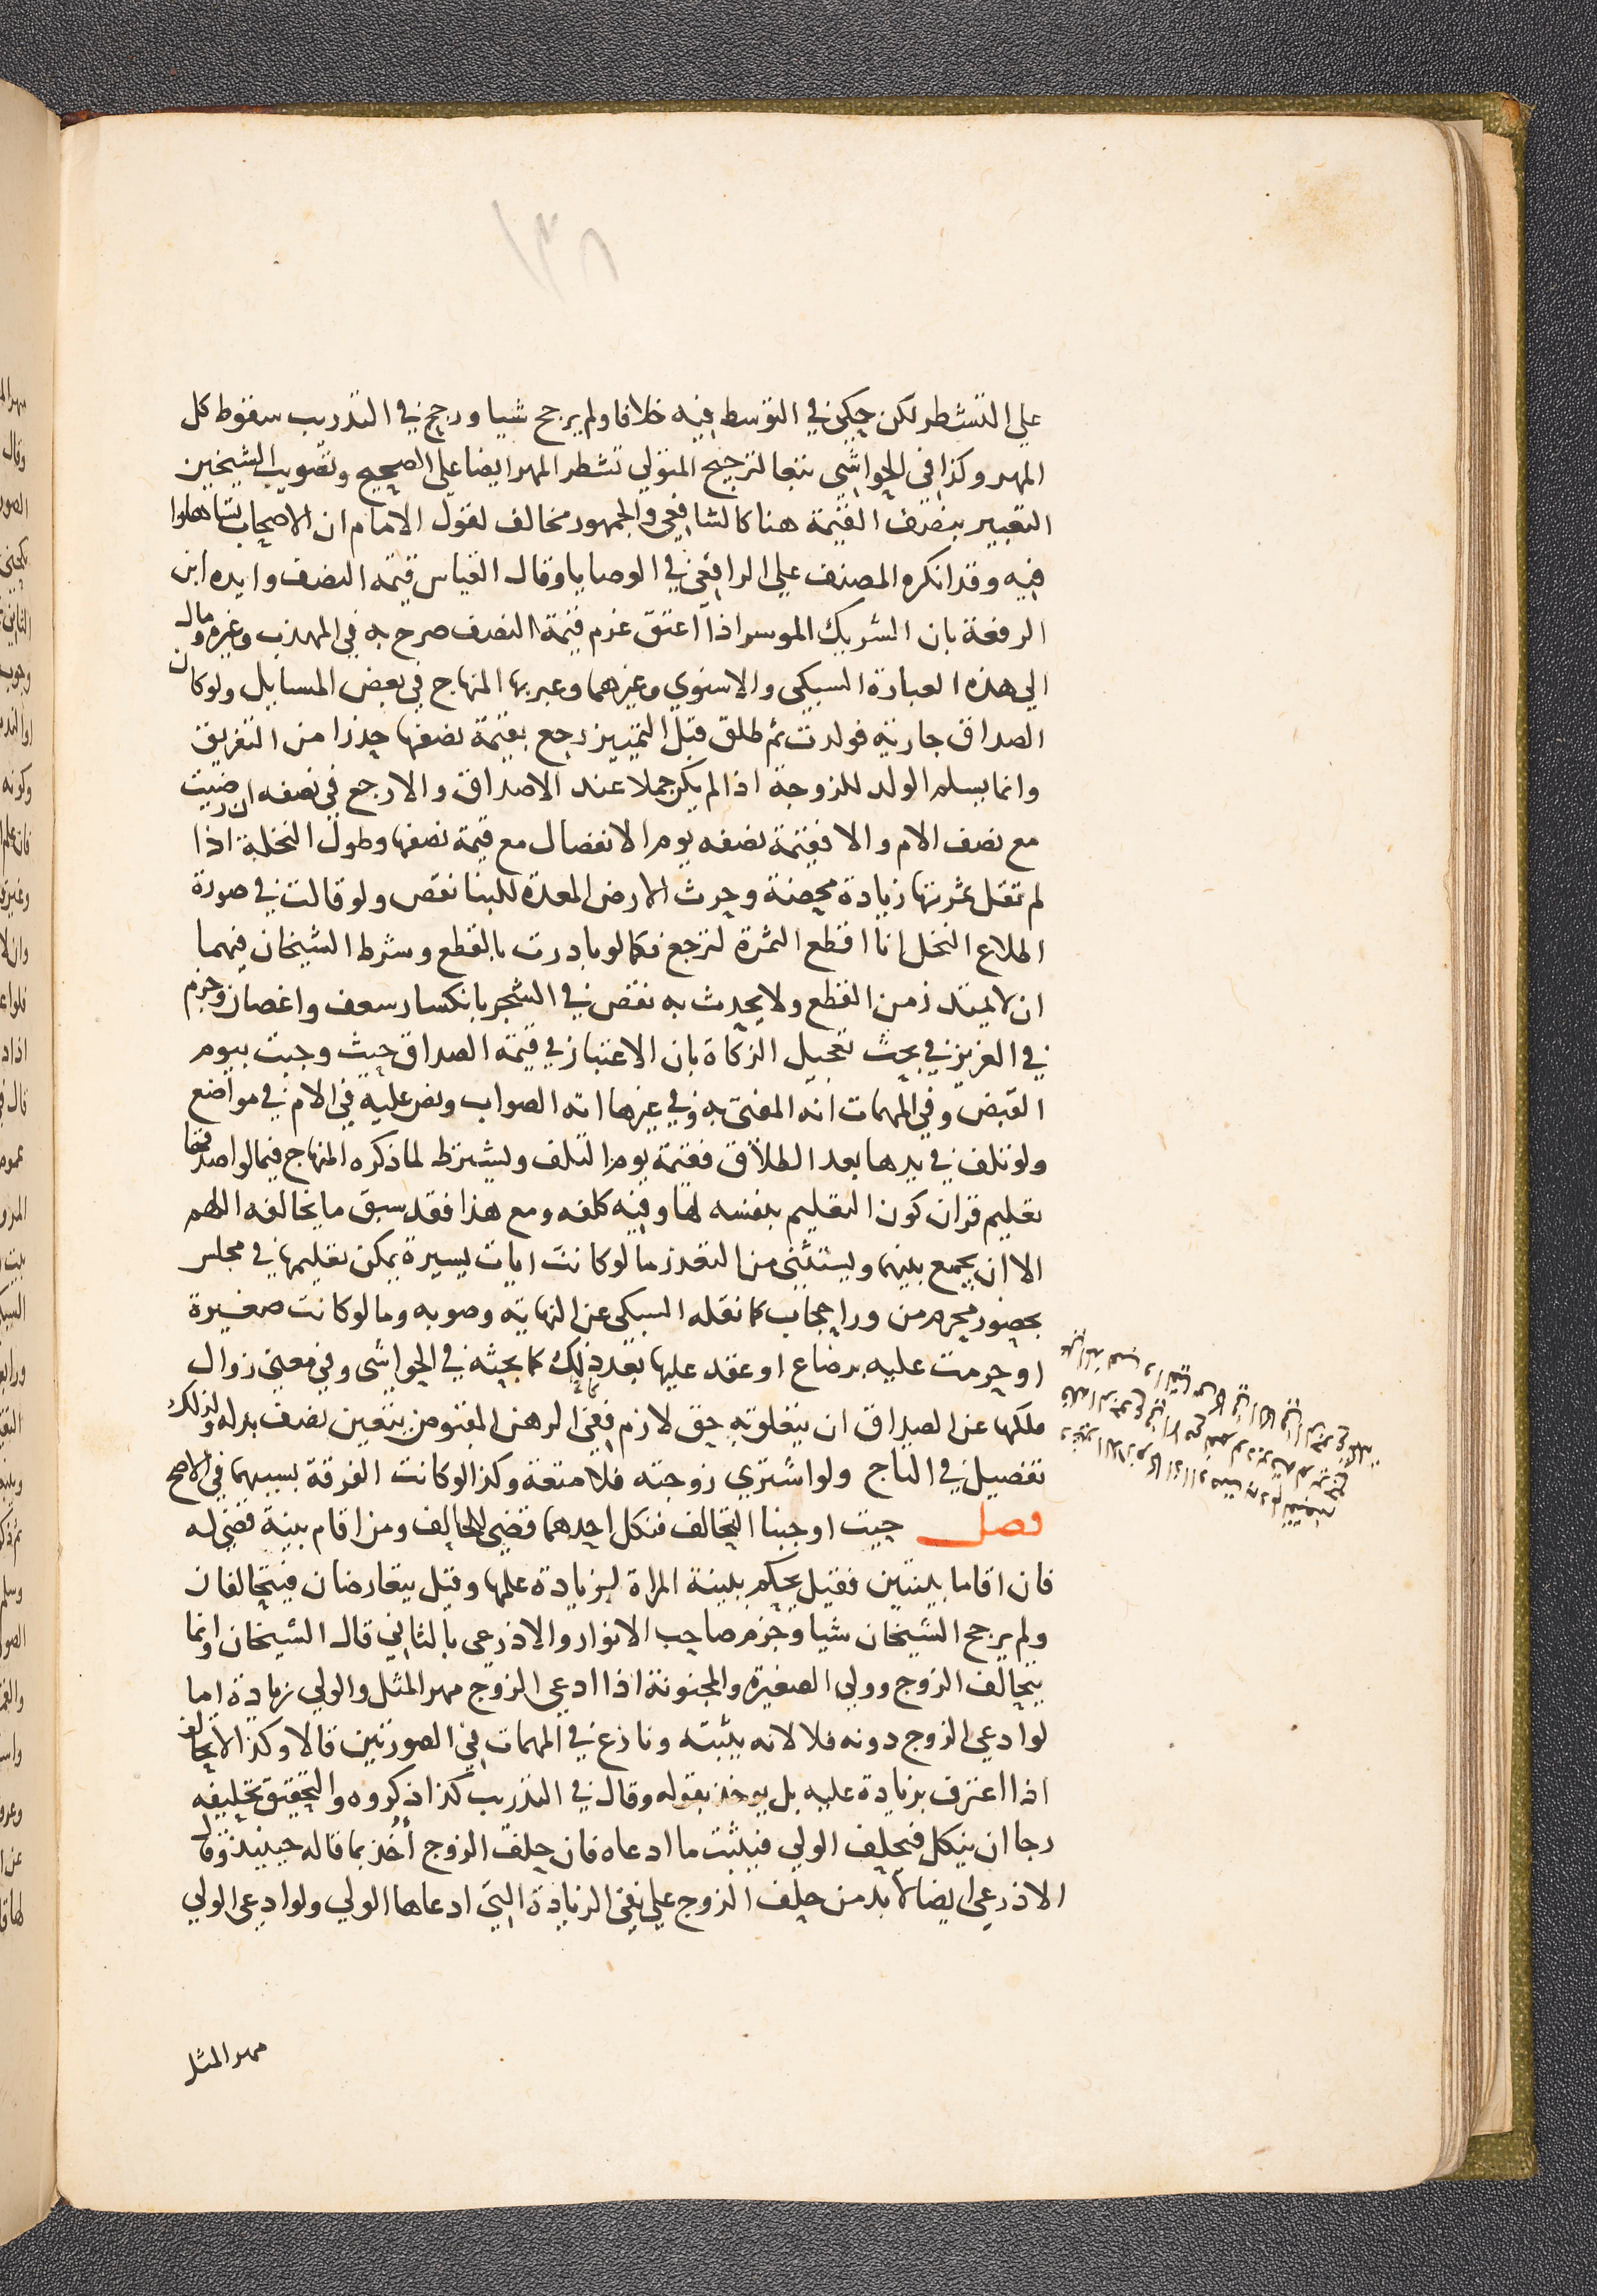 ١٣٨
علي التشطر لكن حكي في التوسط فيه خلافا ولم يرجح شيا ورجح في التدريب سقوط كل
المهر وكذا في الحواشي تبعا لترجيح المتولي تشطر المهر ايضا علي الصحيح وتصويب الشيخين
التعبير بنصف القيمة هنا كالشافعي والجمهور مخالف لقول الامام ان الاصحاب تساهلوا
فيه وقد انكره المصنف علي الرافعي في الوصايا وقال القياس قيمة النصف وايده ابن
الرفعة بان الشريك الموسر اذا اعتق غرم قيمة النصف صرح به في المهذب وغيره ومال
الي هذه العبارة السبكي والاسنوي وغيرهما وعبر بها المنهاج في بعض المسايل ولو كان
الصداق جارية فولدت ثم طلق قبل التمييز رجع بقيمة نصفها حذرا من التفريق
وانما يسلم الولد للزوجة اذا لم يكن حملا عند الاصداق والا رجع في نصفه ان رضيت
مع نصف الام والا فقيمة نصفه يوم الانفصال مع قيمة نصفها وطول النخلة اذا
لم تقل ثمرتها زيادة محضة وحرث الارض المعدة للبنا نقص ولو قالت في صورة
اطلاع النخل انا اقطع الثمرة لترجع فكما لو بادرت بالقطع وشرط الشيخان فيهما
ان لا يمتد زمن القطع ولا يحدث به نقص في الشجر بانكسار سعف واغصان وجزم
في العزيز في بحث تعجيل الزكاة بان الاعتبار في قيمة الصداق حيث وجبت بيوم
القبض وفي المهمات انه المفتى به وفي غيرها انه الصواب ونص عليه في الام في مواضع
ولو تلف في يدها بعد الطلاق فقيمة يوم التلف ويشترط لما ذكره المنهاج فيما لو اصدقها
تعليم قران كون التعليم بنفسه لها وفيه كلفه ومع هذا فقد سبق ما يخالفه اللهم
الا ان يجمع بينهما ويستثنى من التعذر ما لو كانت ايات يسيرة يمكن تعليمها في مجلس
بحضور محرم من ورا حجاب كما نقله السبكي عن النهاية وصوبه وما لو كانت صغيرة
او حرمت عليه برضاع او عقد عليها بعد ذلك كما بحثه في الحواشي وفي معنى زوال
ملكها عن الصداق ان يتعلق به حق لازم ففي الرهن المقبوض يتعين نصف بدله ولذلك
تفصيل في التاج ولو اشتري زوجته فلا متعة وكذا لو كانت الفرقة بسببهما في الاصح
فصل حيث اوجبنا التحالف فنكل احدهما قضي للحالف ومن اقام بينة قضي له
فان اقاما بينتين فقيل يحكم ببينة المراة لزيادة علمها وقيل يتعارضان فيتحالفان
ولم يرجح الشيخان شيا وجزم صاحب الانوار والاذرعي بالثاني قال الشيخان وانما
يتحالف الزوج وولي الصغيرة والمجنونة اذا ادعي الزوج مهر المثل والولي زيادة اما
لو ادعي الزوج دونه فلا لانه يثبته ونازع في المهمات في الصورتين قالا وكذا لا تحالف
اذا اعترف بزيادة عليه بل يوخذ بقوله وقال في التدريب كذا ذكروه والتحقيق تحليفه
رجا ان ينكل فيحلف الولي فيثبت ما ادعاه فان حلف الزوج أُخذ بما قاله حينيذ وقال
الاذرعي ايضا لا بد من حلف الزوج علي نفي الزيادة التي ادعاها الولي ولو ادعي الولي
مهر المثل